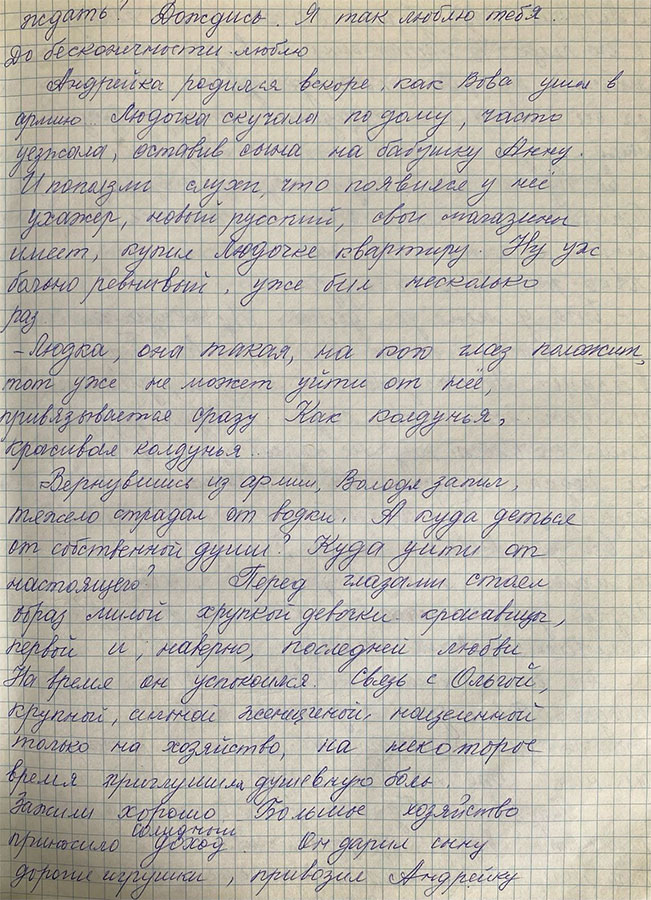 ждать? Дождись. Я так люблю тебя.
До бесконечности люблю
Андрейка родился вскоре, как Вова ушел в
армию. Людочка скучала по дому, часто
уезжала, оставив сына на бабушку Анну.
И поползли слухи, что появился у неё
ухажер, новый русский, свои магазины
имеет, купил Людочке квартиру. Ну уж
больно ревнивый, уже бил несколько
раз
- Людка, она такая, на кого глаз положит,
тот уже не может уйти от неё,
привязывается сразу Как колдунья,
красивая колдунья..
Вернувшись из армии, Володя запил,
тяжело страдал от водки. А куда деться
от собственной души? Куда уйти от
настоящего? Перед глазами стоял
образ милой хрупкой девочки красавицы,
первой и, наверно, последней любви
На время он успокоился. Связь с Ольгой,
крупной, сильной женщиной, нацеленной
только на хозяйство, на некоторое
время приглушила душевную боль.
Зажили хорошо Большое хозяйство
приносило солидный доход. Он дарил сыну
дорогие игрушки, привозил Андрейку